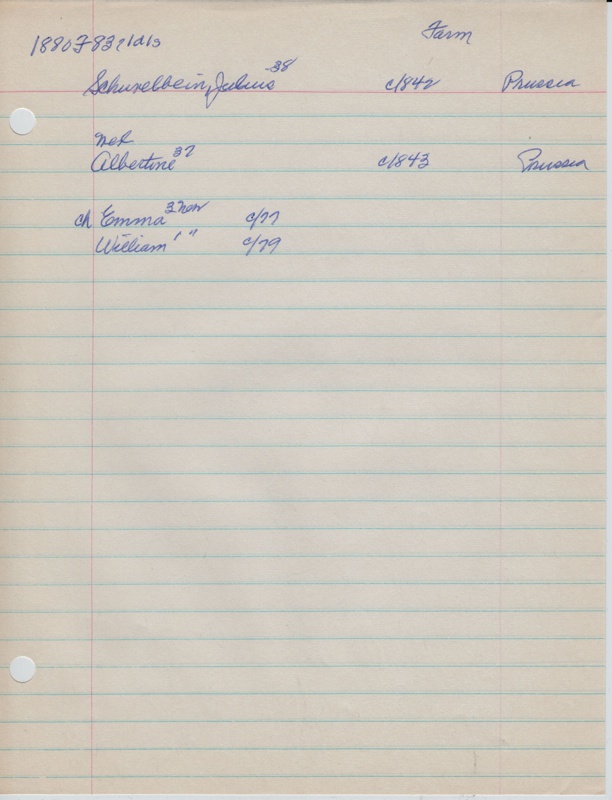 1880 F83 21d13 Farm
Schuxelbein, Julius 38 c/842 Prussia
md
Albertine 37 c/843 Prussia
ch Emma 3 nov c/77
William 1 " c/79